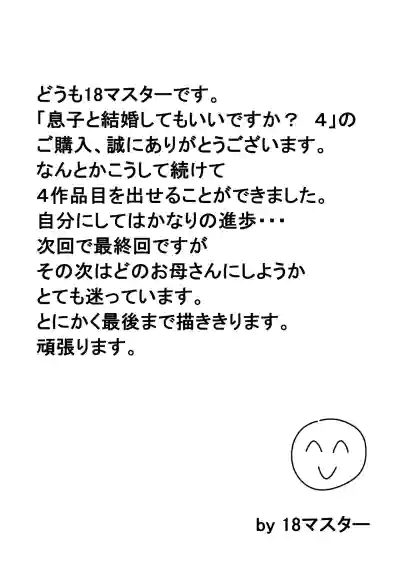 どうも18マスターです。
「息子と結婚してもいいですか？　４」の
ご購入、誠にありがとうございます。
なんとかこうして続けて
４作品目を出せることができました。
自分にしてはかなりの進歩・・・
次回で最終回ですが
その次はどのお母さんにしようか
とても迷っています。
とにかく最後まで描ききります。
頑張ります。
by 18マスター